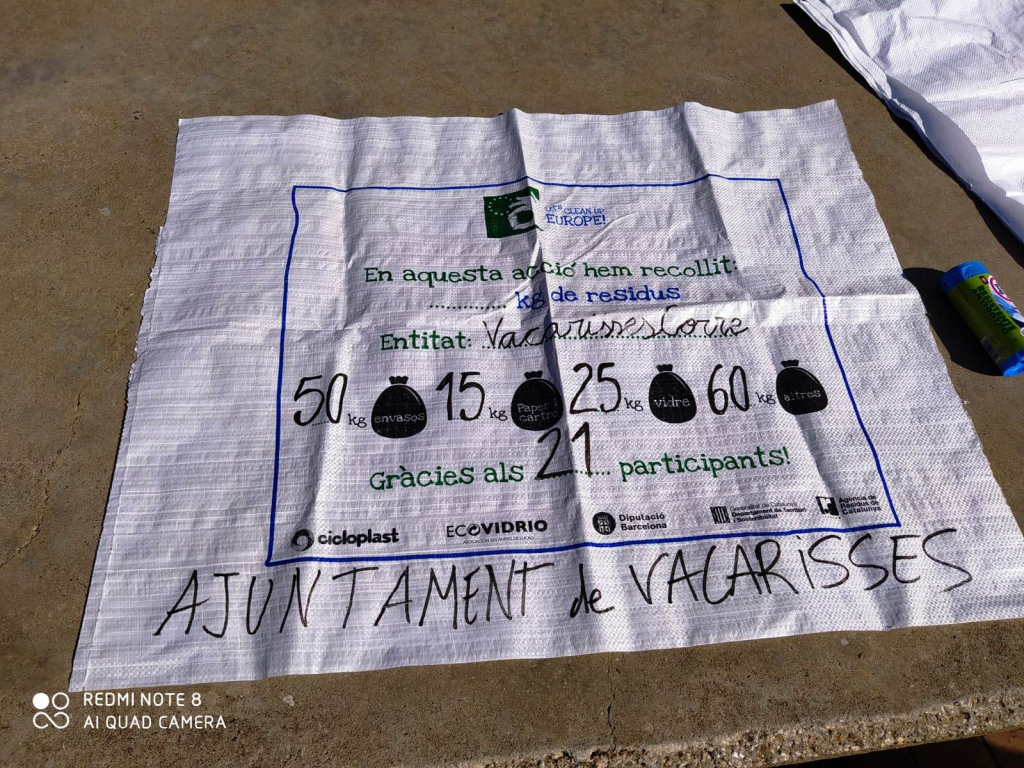 LET'S CLEAN UP
EUROPE!
En aquesta acció hem recollit:
............ kg de residus
Entitat: VacarissesCorre
50 kg envasos 15 kg Paper i cartró 25 kg vidre 60 kg altres
Gràcies als 21 participants!
cicloplast
ECOVIDRIO
Diputació
Barcelona
Generalitat de Catalunya
Departament de Territori
i Sostenibilitat
Agència de
Residus de
Catalunya
AJUNTAMENT de VACARISSES
REDMI NOTE 8
AI QUAD CAMERA